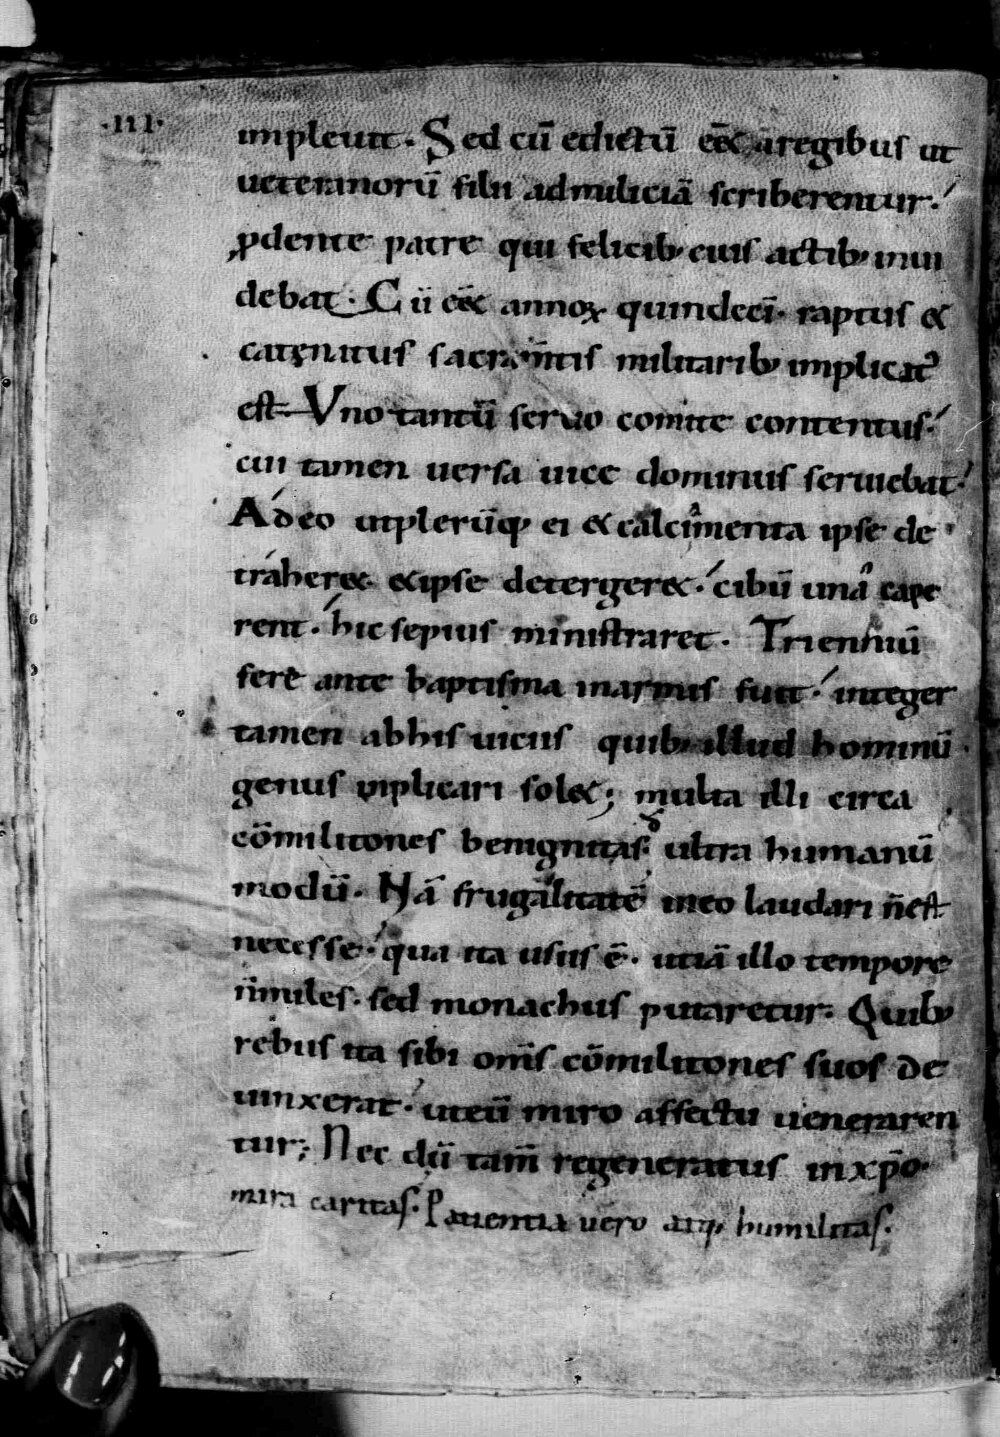 ·III· impleuit. Sed cū edictū eēt a regibus ut
ueteranorū filii ad miliciā scriberentur.
ꝓdente patre qui felicib; eius actib; inui
debat. Cū eēt annoꝝ quindecī. raptus &
catenatus sacramtis militarib; implicat᾽
est. Vno tantū seruo comite contentus.
cui tamen uersa uice dominus seruiebat.
Adeo ut plerūq; ei & calciamenta ipse de
traher& & ipse deterger&. cibū una cape
rent. hic sepius ministraret. Trienniū
fere ante baptisma in armis fuit. integer
tamen ab his uiciis quib; illud hominū
genus inplicari sol&; multa illi circa
cōmilitones benignitas. ultra humanū
modū. Nā frugalitatē in eo laudari n̄ est
necesse. qua ita usus ē. ut iā illo tempore
n̄ miles. sed monachus putaretur. Quib;
rebus ita sibi om̄s cōmilitones suos de
uinxerat. ut eū miro affectu ueneraren
tur; Nec dū tam̄ regeneratus in xp̄o.
mira caritas. Patientia uero atq; humilitas.